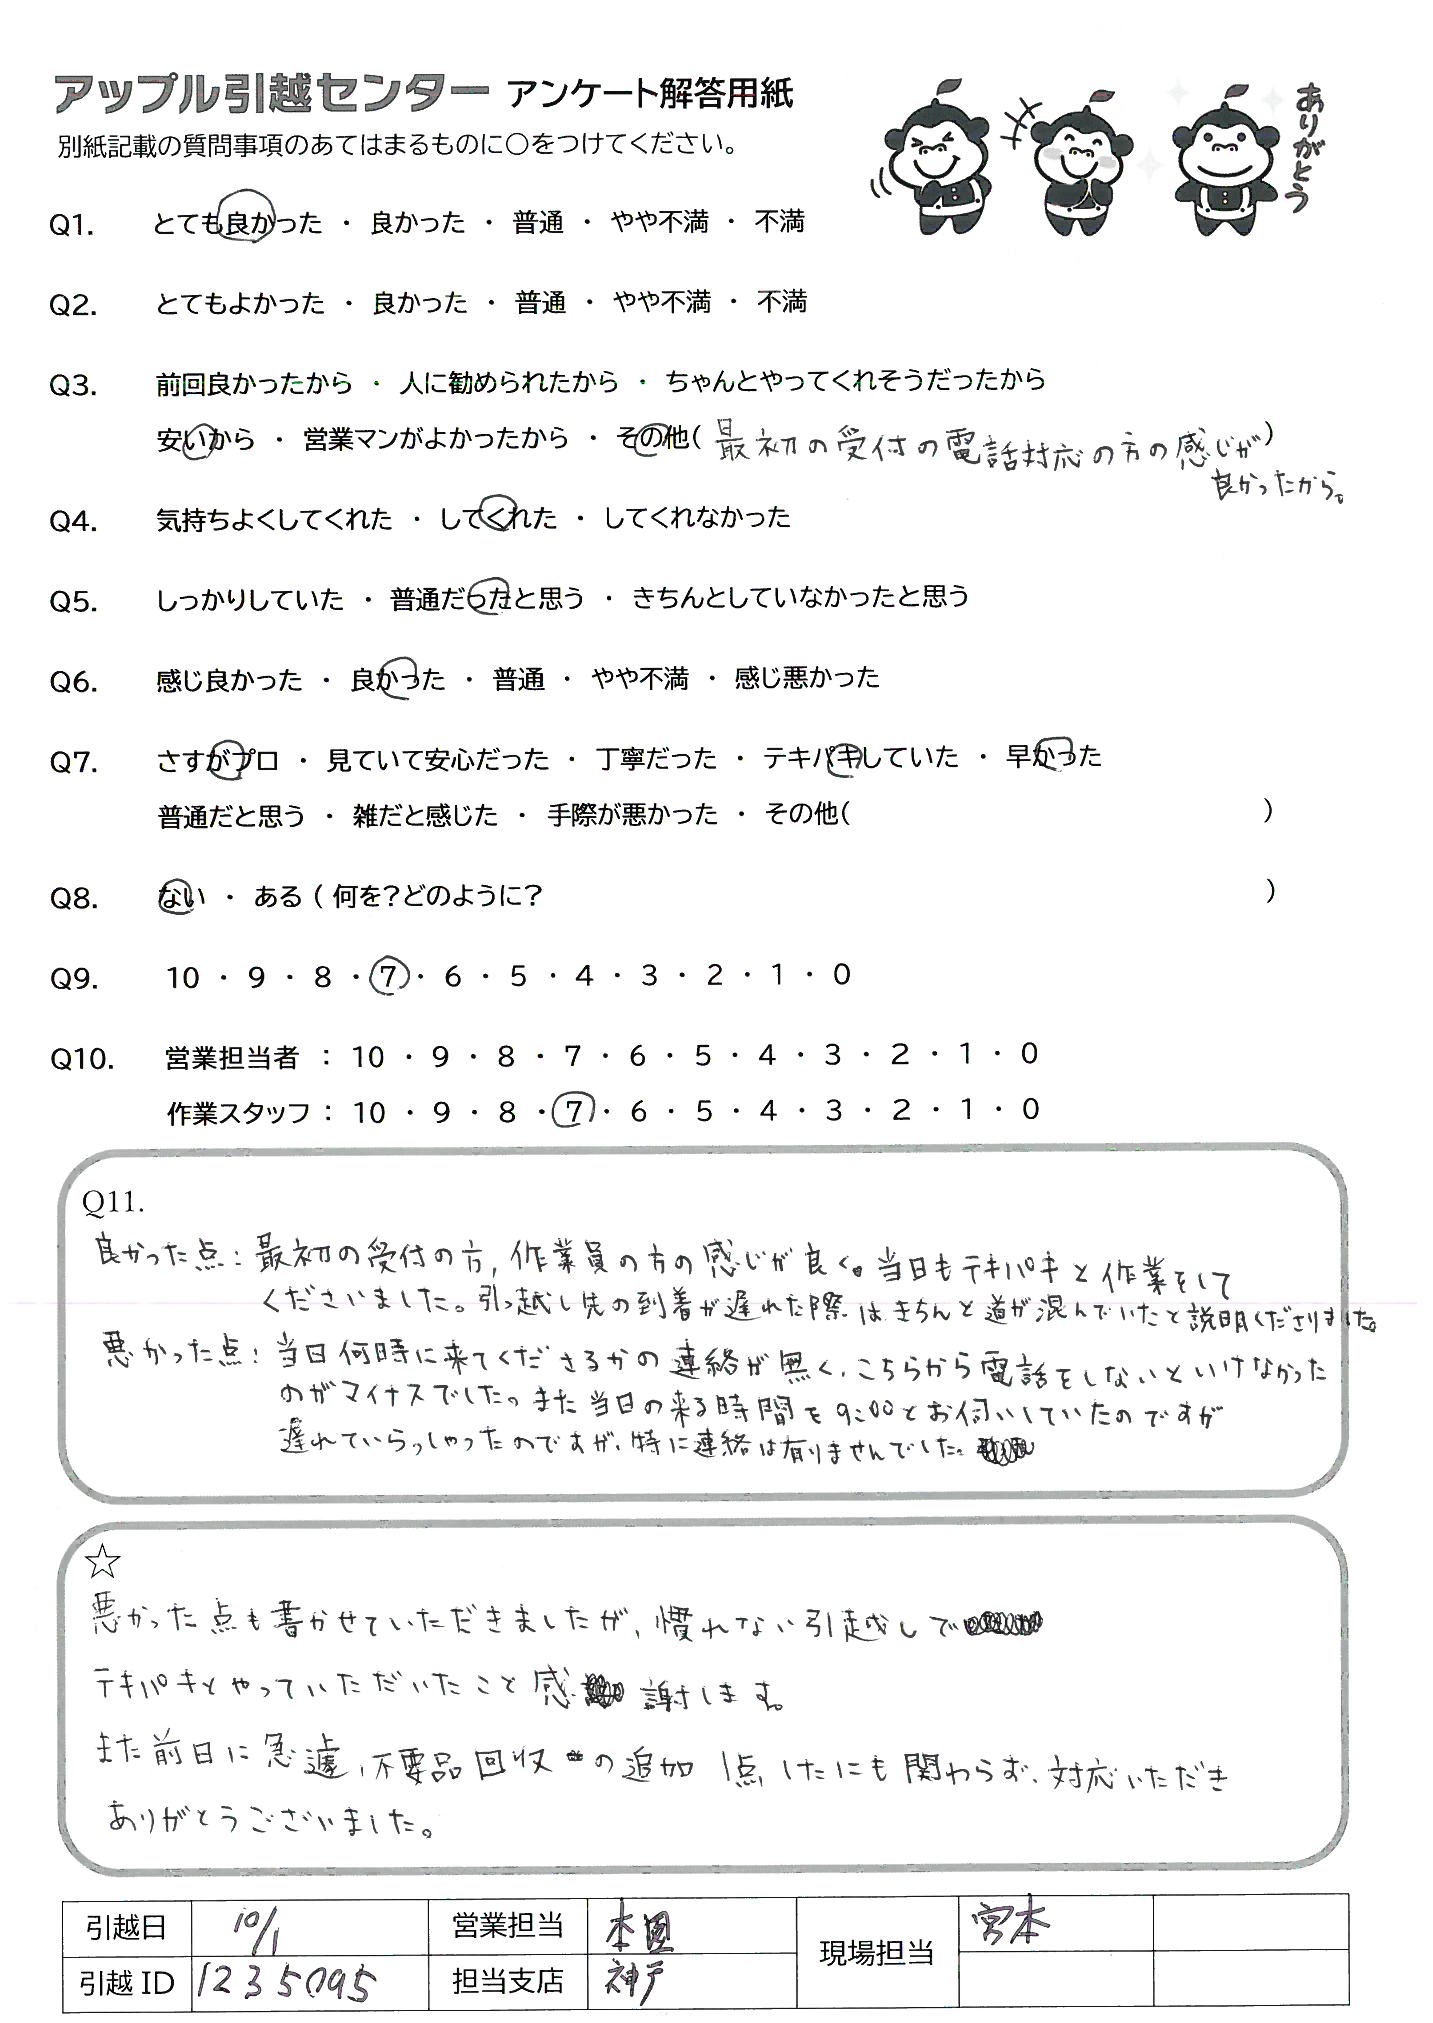 アップル引越センター アンケート解答用紙
ありがとう
別紙記載の質問事項のあてはまるものに○をつけてください。
Q1. とても良かった ・ 良かった ・ 普通 ・ やや不満 ・ 不満
Q2. とてもよかった ・ 良かった ・ 普通 ・ やや不満 ・ 不満
Q3. 前回良かったから ・ 人に勧められたから ・ ちゃんとやってくれそうだったから
安いから ・ 営業マンがよかったから ・ その他( 最初の受付の電話対応の方の感じが )
良かったから。
Q4. 気持ちよくしてくれた ・ してくれた ・ してくれなかった
Q5. しっかりしていた ・ 普通だったと思う ・ きちんとしていなかったと思う
Q6. 感じ良かった ・ 良かった ・ 普通 ・ やや不満 ・ 感じ悪かった
Q7. さすがプロ ・ 見ていて安心だった ・ 丁寧だった ・ テキパキしていた ・ 早かった
普通だと思う ・ 雑だと感じた ・ 手際が悪かった ・ その他( )
Q8. ない ・ ある ( 何を?どのように? )
Q9. 10 ・ 9 ・ 8 ・ 7 ・ 6 ・ 5 ・ 4 ・ 3 ・ 2 ・ 1 ・ 0
Q10. 営業担当者 : 10 ・ 9 ・ 8 ・ 7 ・ 6 ・ 5 ・ 4 ・ 3 ・ 2 ・ 1 ・ 0
作業スタッフ : 10 ・ 9 ・ 8 ・ 7 ・ 6 ・ 5 ・ 4 ・ 3 ・ 2 ・ 1 ・ 0
Q11.
良かった点：最初の受付の方, 作業員の方の感じが良く。当日もテキパキと作業をして
くださいました。引っ越し先の到着が遅れた際はきちんと道が混んでいたと説明くださりました。
悪かった点：当日何時に来てくださるかの連絡が無く、こちらから電話をしないといけなかった
のがマイナスでした。また当日の来る時間を9:00とお伺いしていたのですが
遅れていらっしゃったのですが、特に連絡は有りませんでした。
☆
悪かった点も書かせていただきましたが, 慣れない引越しで
テキパキとやっていただいたこと感謝します。
また前日に急遽、不要品回収の追加1点したにも関わらず、対応いただき
ありがとうございました。
引越日 10/1 営業担当 本 現場担当 宮本
引越ID 1235095 担当支店 神戸